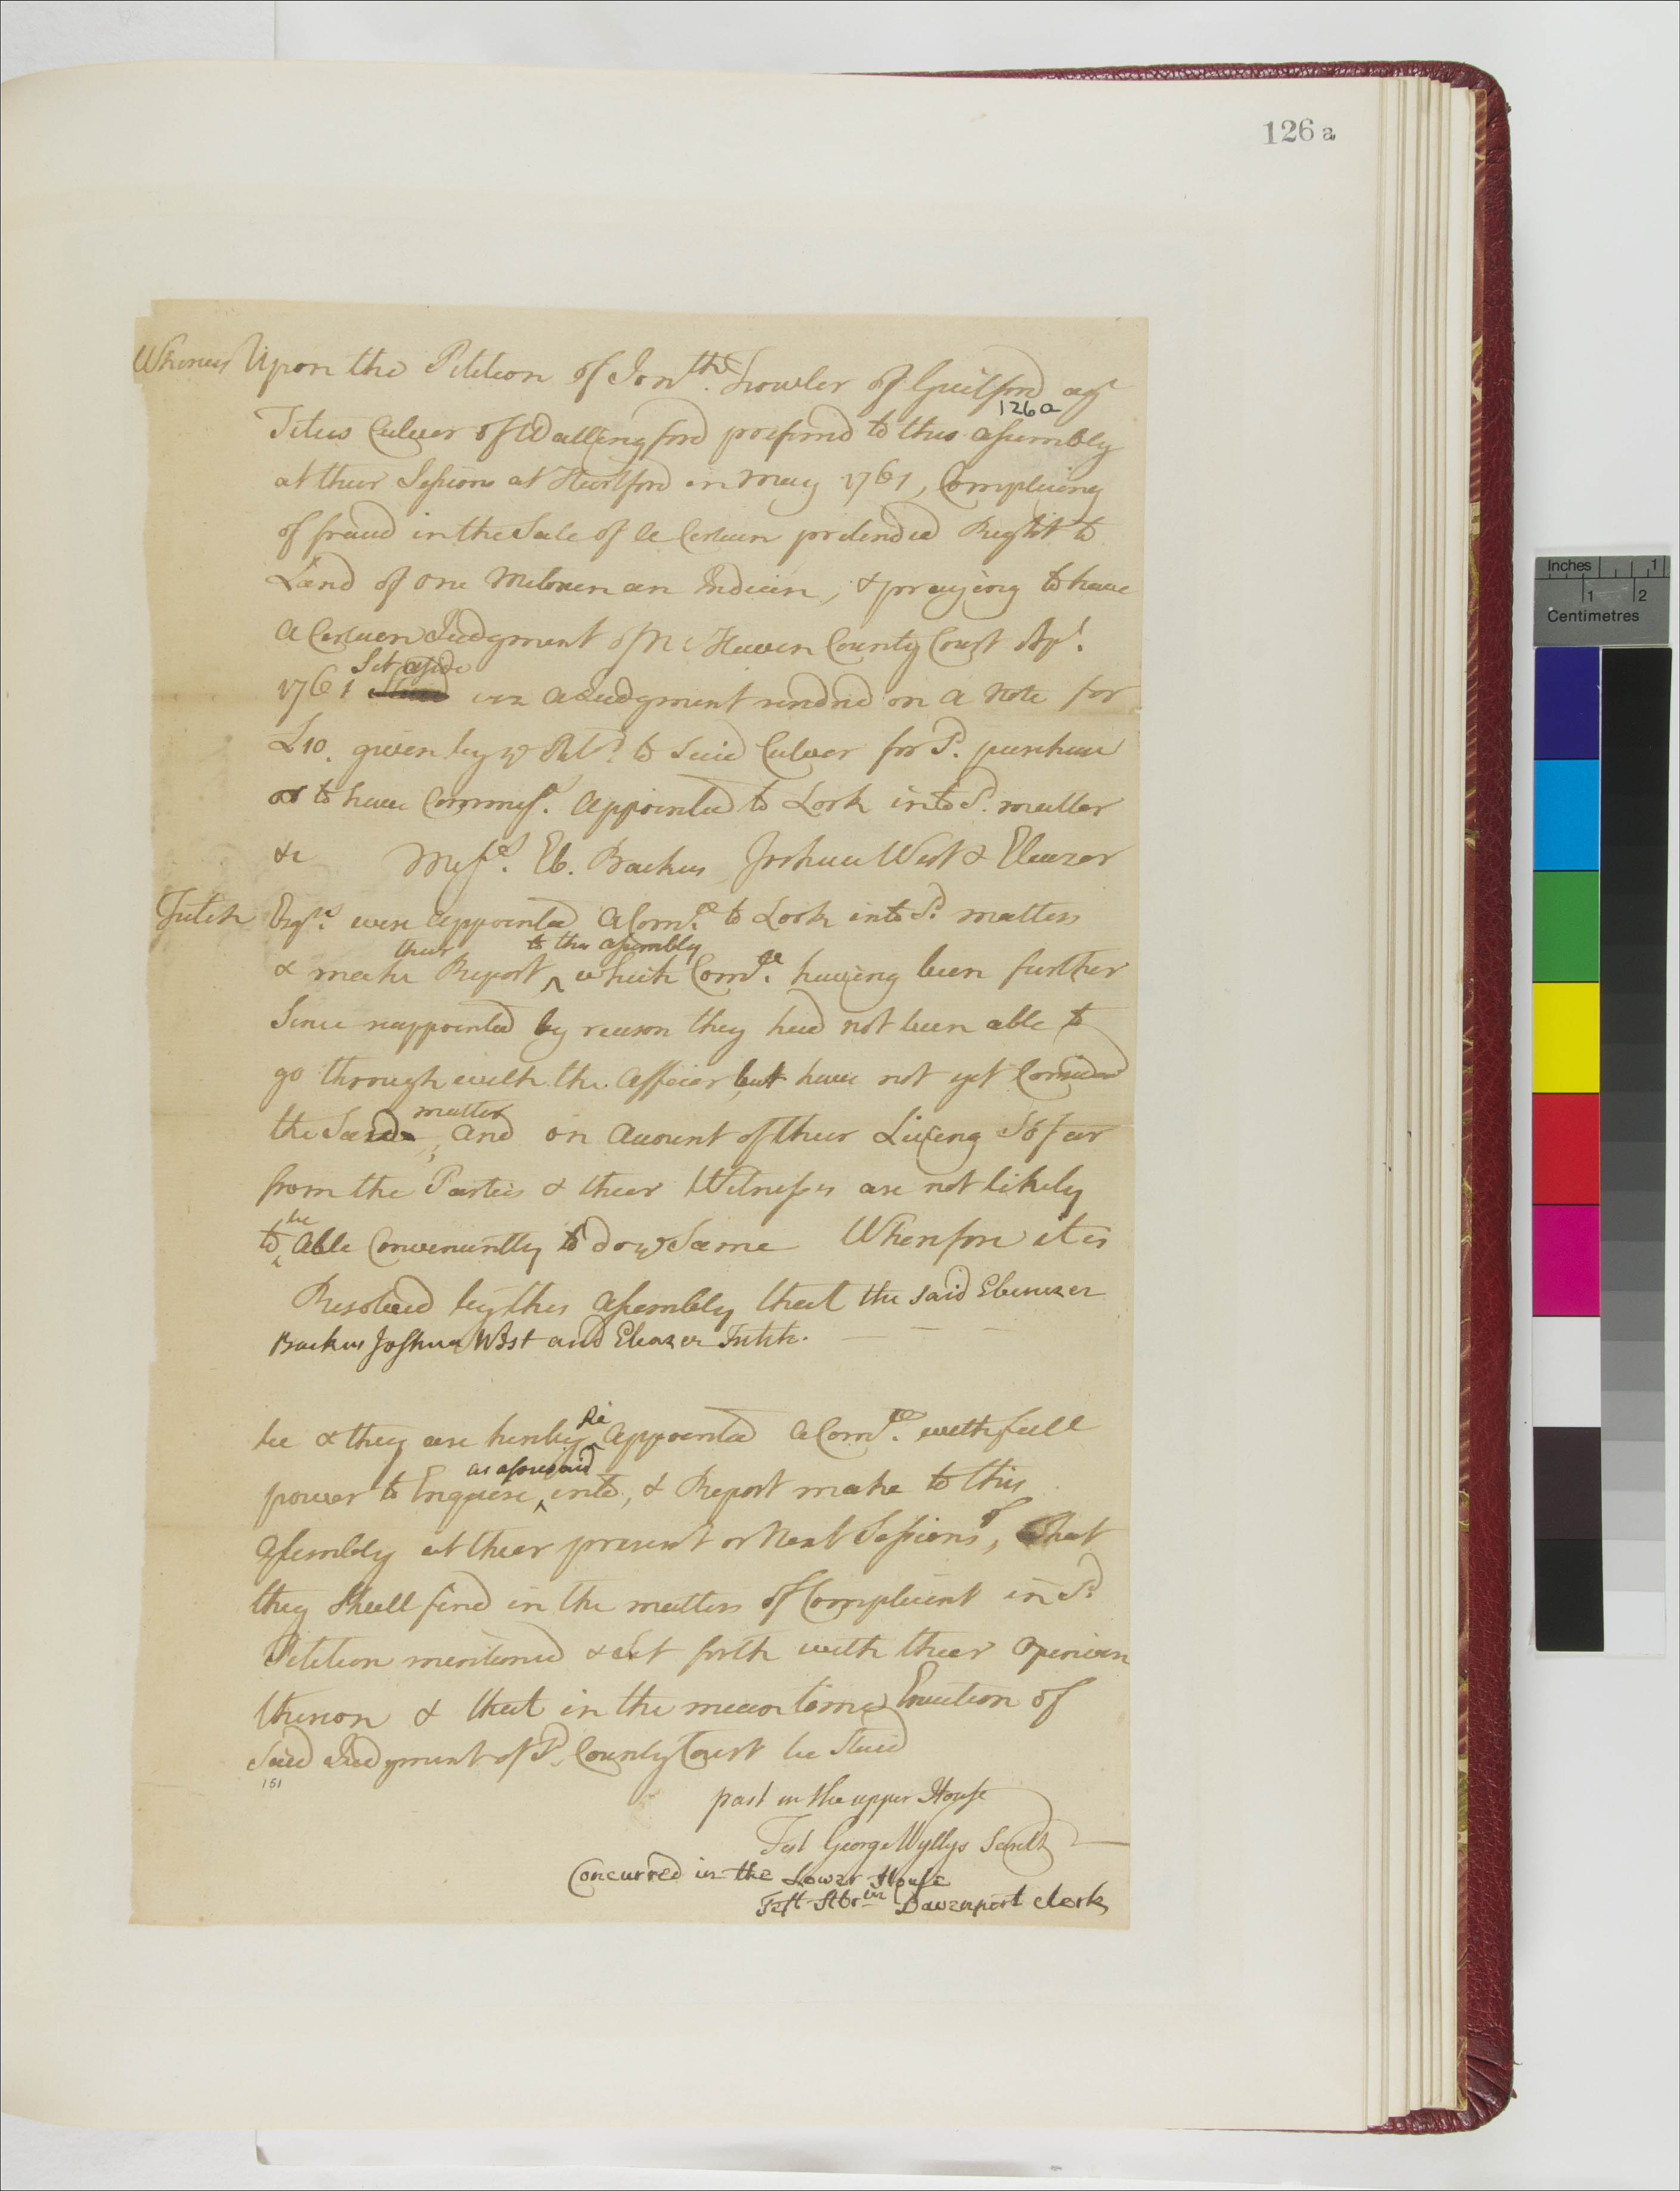 126 a
Whereas Upon the Petition of Jonth. Fowler of Guilford agt
126a
Titus Culver of Wallingford prefered to this Assembly
at their Sessions at Hartford in May 1761, Complaining
of fraud in the Sale of a Certain pretended Right to
Land of one an Indian, & praying to have
a Certain Judgment of N: Haven County Court Apl.
Set aside
1761 a Judgment rendred on a Note for
£10. given by ye Petr. to Said Culver for Sd. purchase
or to have Commee. Appointed to Look into Sd. matter
&c Messrs. Eb. Backus Joshua West & Eleazer
Fitch Esqrs. were appointed a Comtee to Look into Sd. matters
their to this assembly
& make Report ^ which Comtee. having been further
Since reappointed by reason they had not been able to
go through with the Affair, but have not yet
matter
the Said, and on Account of their Living So far
from the Parties & their Witnesses are not likely
be
to ^ Able Conveniently to do ye Same Wherefore it is
Resolved by this Assembly that the said Ebenezer
Backus Joshua West and Eleazer Fitch.
Re
be & they are hereby ^ Appointed a Comtee. with full
as aforesaid
power to Enquire ^ into, & Report make to this
Assembly at their present or Next Sessions, What
they Shall find in the matters of Complaint in Sd.
Petition mentioned & Set forth with their Opinion
thereon & that in the mean time Execution of
Said Judgment of Sd. County Court be Staid
151
past in the upper House
Test George Wyllys Secrety
Concurred in the Lower House
Test Abrm Davenport Clerk
Inches 1
1 2
Centimetres